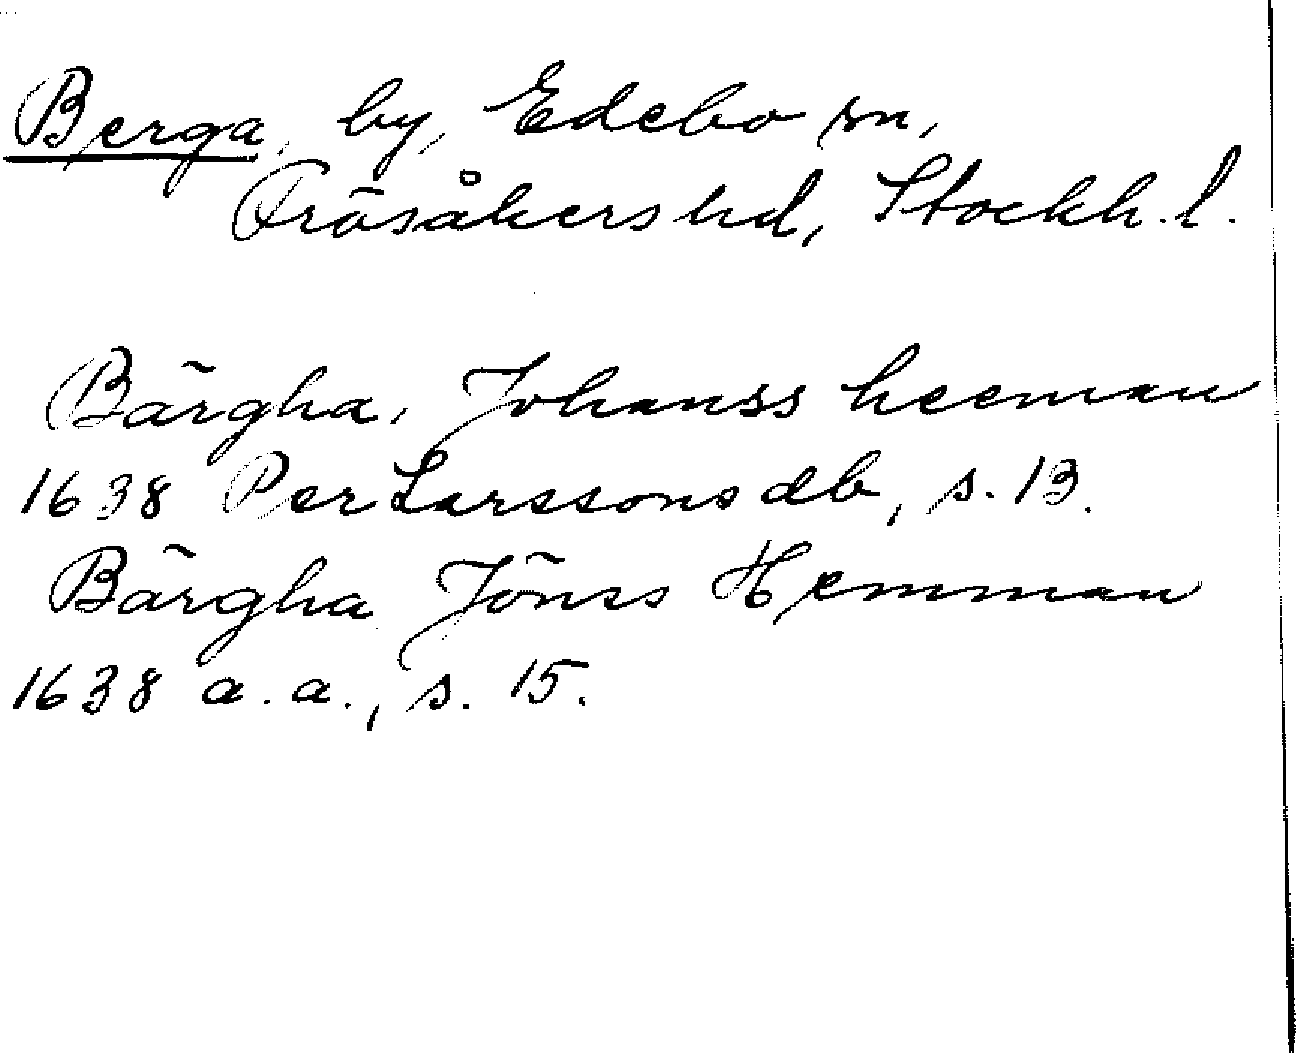 Berga, by, Edebo sn,
Frösåkers hd, Stockh. l.
Bärgha, Johanss heeman
1638 Per Larssons db, s. 13.
Bärgha Jönss Hemman
1638 a. a., s. 15.